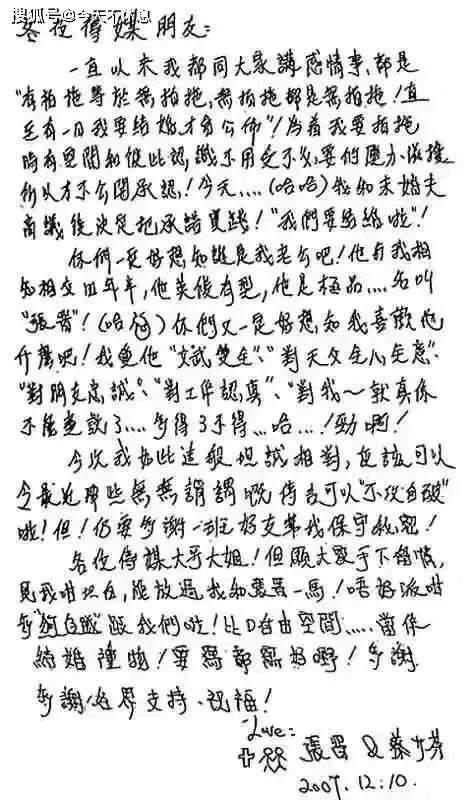 搜狐号@今天不休息
各位傳媒朋友:
一直以來我都同大家講感情事,都是
"有拍拖等於無拍拖,無拍拖都是無拍拖!直
至有一日我要結婚,才會公佈"!為着我要拍拖
時有空間和彼此認識不用受不必要的壓力
所以才不公開承認!今天....(哈哈)我和未婚夫
商議後決定把承諾實踐!"我們要結婚啦"!
你們一定好想知誰是我老公吧!他與我相
知相交四年半,他英俊有型,他是極品....名叫
"張晋"!(哈哈)你們又一定好想知我喜歡他
什麼吧!我愛他"文武雙全"、"對天父全心全意"、
"對朋友忠誠"、"對工作認真"、"對我~就真係
不能盡說了....多得3不得...哈...!勁啊!
今次我如此這般坦誠相對,應該可以
令最近那些無無謂謂嘅傳言可以"不攻自破"
啦!但!仍要多謝一班好友幫我保守秘密!
各位傳媒大哥大姐!但願大家手下留情,
見我咁坦白,能放過我和張晋一馬!唔好派咁
多"狗自隊"跟我們啦!比D自由空間.....當係
結婚禮物!要寫都寫好嘢!多謝
多謝各界支持、祝福!
Love:
張晋 & 蔡少芬
2007.12.10.